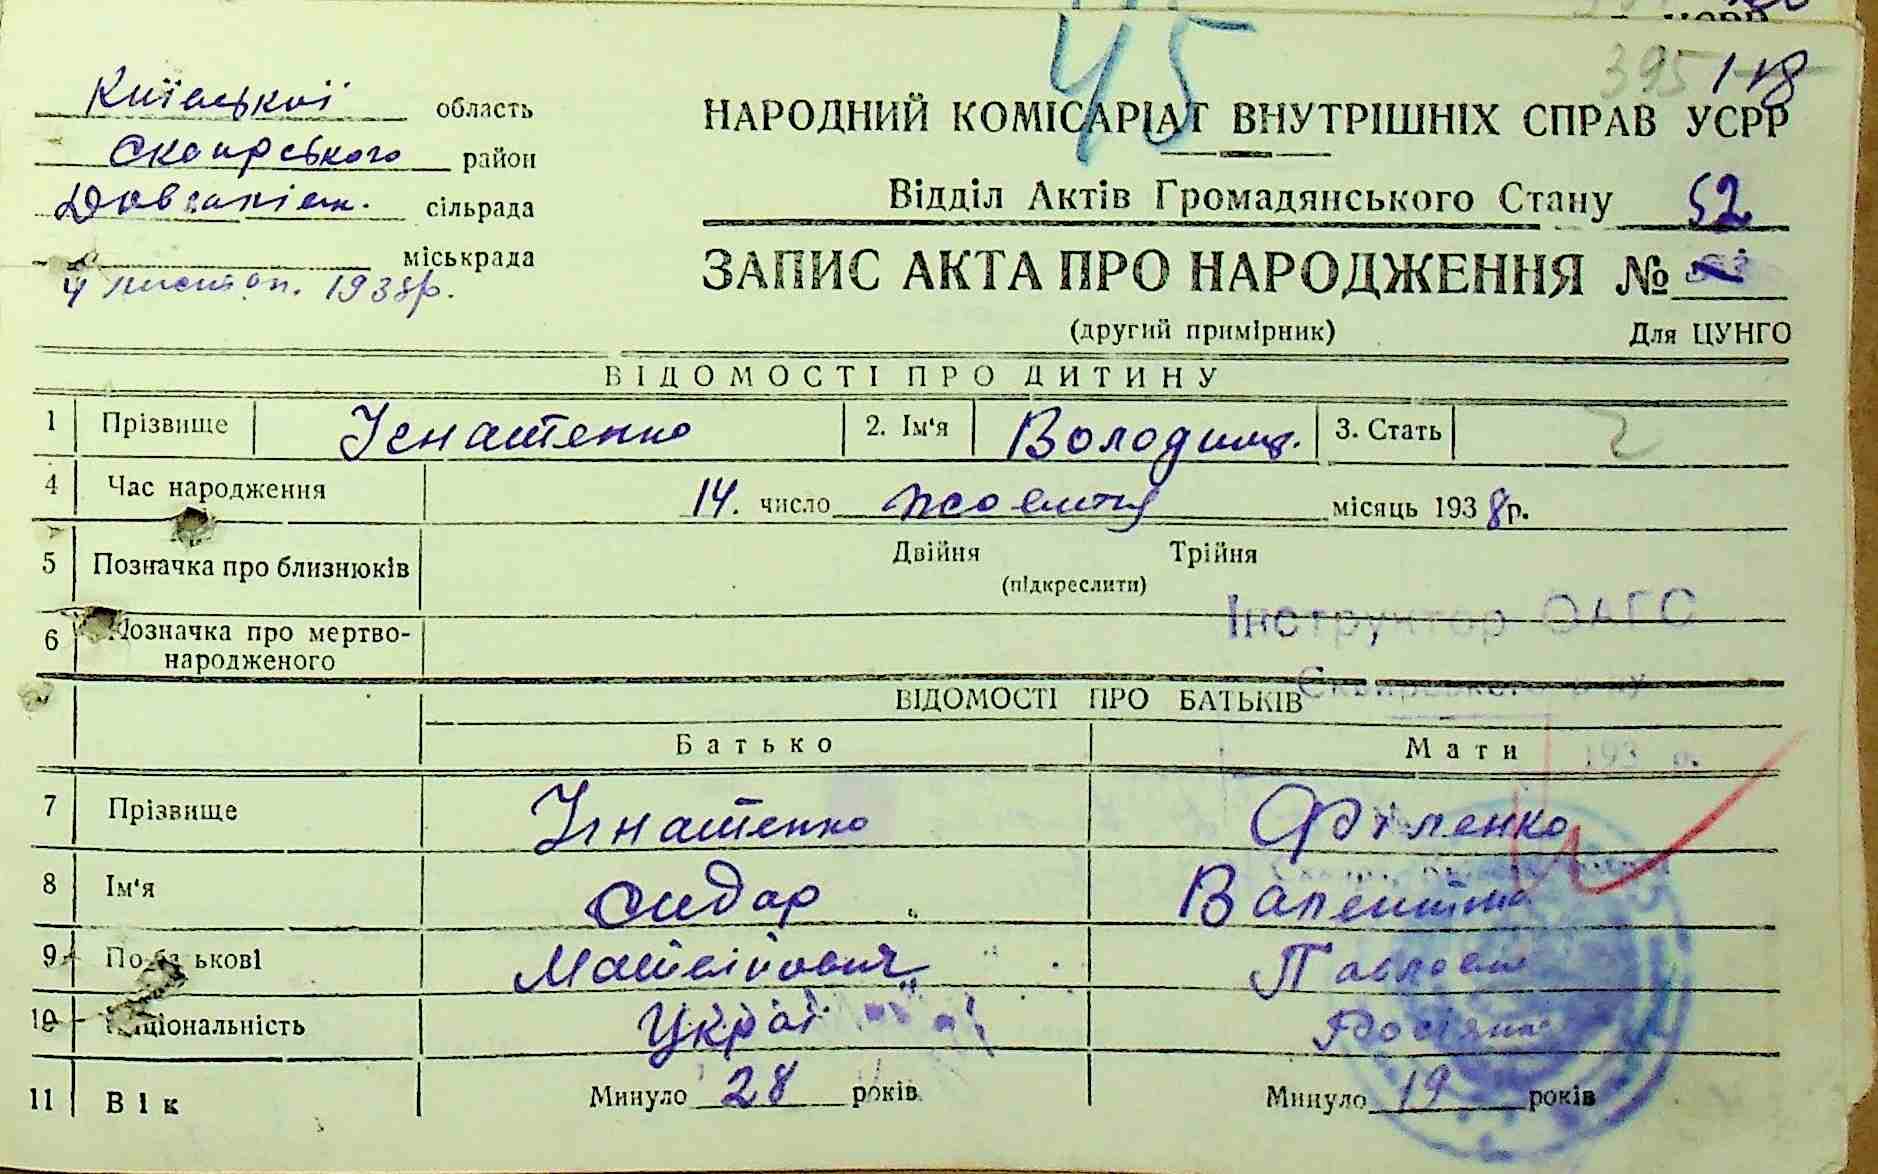 45
395 118
Київської область
Сквирського район
сільрада
міськрада
4 листоп. 1938р.
НАРОДНИЙ КОМІСАРІАТ ВНУТРІШНІХ СПРАВ УСРР
Відділ Актів Громадянського Стану 52
ЗАПИС АКТА ПРО НАРОДЖЕННЯ №
(другий примірник) Для ЦУНГО
ВІДОМОСТІ ПРО ДИТИНУ
1 Прізвище Ігнатенко 2. Ім'я Володим. 3. Стать ч
4 Час народження 14. число жовтня місяць 1938р.
5 Позначка про близнюків Двійня Трійня
(підкреслити)
Інструктор ОАГС
6 Позначка про мертво-
народженого
Сквирського
ВІДОМОСТІ ПРО БАТЬКІВ
Батько Мати
193 р.
7 Прізвище Ігнатенко Філенко
8 Ім'я Сидор Валентина
9 По батькові Матвійович Павлов
10 Національність Украї Росіянка
11 Вік Минуло 28 років Минуло 19 років